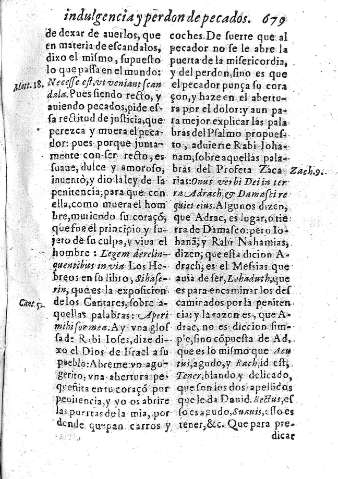 indulgencia y perdon de pecados. 679
de dexar de auerlos, que
en materia de escandalos,
dixo el mismo, supuesto
lo que passa en el mundo:
Mat. 18. Necesse est, vt veniant scan
dala. Pues siendo recto, y
auiendo pecados, pide es-
sa rectitud de justicia, que
perezca y muera el peca-
dor: pues porque junta-
mente con ser recto, es
suaue, dulce y amoroso,
inuentó, y dio la ley de la
penitencia; para que con
ella, como muera el hom
bre, muriendo su coraçõ,
que fue el principio y su-
jeto de su culpa, y viua el
hombre: Legem derelin-
quentibus in via. Los He-
breos en su libro, Sibase-
rin, que es la exposicion
de los Cantares, sobre a-
Cant. 5. quellas palabras: Aperi
mihi soror mea. Ay vna glos
sa de Rabi Ioses, dize di-
xo el Dios de Israel a su
pueblo: Abreme vn agu-
gerito, vna abertura pe-
queñita en tu coraçõ por
penitencia, y yo os abrire
las puertas de la mia, por
donde quepan carros y
coches. De suerte que al
pecador no se le abre la
puerta de la misericordia,
y del perdon, sino es que
el pecador punça su cora
çon, y haze en el abertu-
ra por el dolor: y aun pa-
ra mejor explicar las pala
bras del Psalmo propues-
to, aduierte Rabi Ioha-
nam, sobre aquellas pala-
bras del Profeta Zaca Zach. 9.
rias: Onus verbi Dei in ter
ra Adrach, & Damasci re
quiei eius. Algunos dizen,
que Adrac, es lugar, o tie
rra de Damasco: pero Io-
hanã, y Rabi Nahamias,
dizen, que esta dicion A-
drach, es el Messias que
auia de ser, Lohaduth, que
es para encaminar los des
caminados por la peniten
cia: y la razon es, que A-
drac, no es diccion sim-
ple, sino cõpuesta de Ad,
que es lo mismo que Acu
tus, agudo, y Rach, id est,
Tener, blando y delicado,
que son los dos apellidos
que le da Dauid. Rectus, es
so es agudo, Suauis, esso es
tener, &c. Que para pre-
dicar